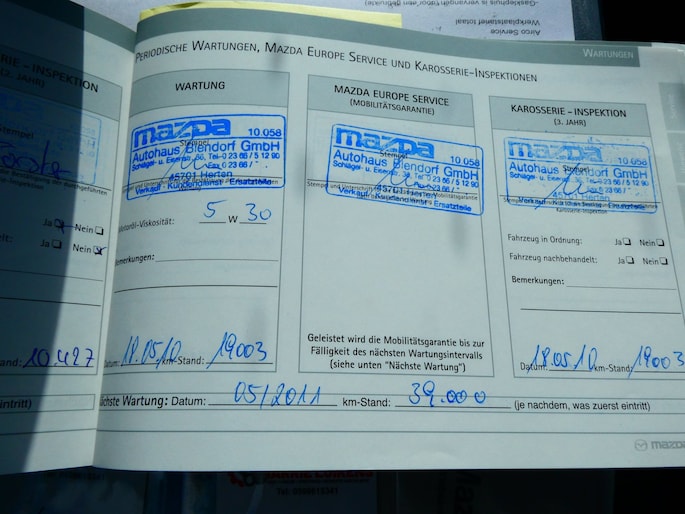 Airco Service
Werkplaatstarief totaal
PERIODISCHE WARTUNGEN, MAZDA EUROPE SERVICE UND KAROSSERIE-INSPEKTIONEN
WARTUNGEN
SSERIE - INSPEKTION
(2. JAHR)
Stempel
Ja Nein
Ja Nein
and: 10.427
intritt)
WARTUNG
mazda 10.058
Stempel
Autohaus Blendorf GmbH
Schlägel- u. Eisenstr. 36, Tel. 0 23 66 / 5 12 90
Fax 0 23 66 /
45701 Herten
Verkauf - Kundendienst - Ersatzteile
Motoröl-Viskosität: 5 W 30
Bemerkungen:
Datum: 18.05.10 km-Stand: 19003
MAZDA EUROPE SERVICE
(MOBILITÄTSGARANTIE)
mazda 10.058
Stempel
Autohaus Blendorf GmbH
Schlägel- u. Eisenstr. 36, Tel. 0 23 66 / 5 12 90
Fax 0 23 66 /
45701 Herten
Verkauf - Kundendienst - Ersatzteile
Geleistet wird die Mobilitätsgarantie bis zur
Fälligkeit des nächsten Wartungsintervalls
(siehe unten "Nächste Wartung")
KAROSSERIE - INSPEKTION
(3. JAHR)
mazda 10.058
Stempel
Autohaus Blendorf GmbH
Schlägel- u. Eisenstr. 36, Tel. 0 23 66 / 5 12 90
Fax 0 23 66 /
45701 Herten
Karosserie-Inspektion
Fahrzeug in Ordnung: Ja Nein
Fahrzeug nachbehandelt: Ja Nein
Bemerkungen:
Datum: 18.05.10 km-Stand: 19003
ächste Wartung: Datum: 05/2011 km-Stand: 39.000 (je nachdem, was zuerst eintritt)
mazda